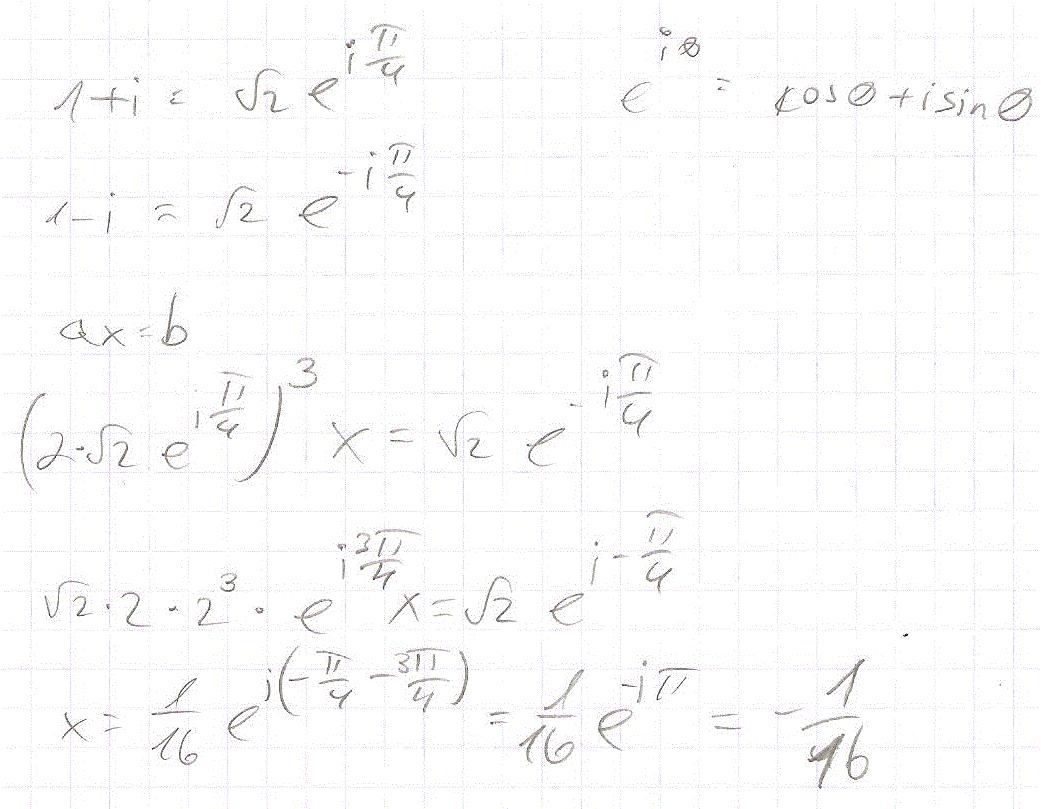 1+i = √2 e^{i π/4}    e^{iθ} = cosθ + i sinθ
1-i = √2 e^{-i π/4}
ax=b
(2·√2 e^{i π/4})^3 x = √2 e^{-i π/4}
√2·2·2^3·e^{i 3π/4} x = √2 e^{i -π/4}
x = 1/16 e^{i(-π/4 - 3π/4)} = 1/16 e^{-iπ} = -1/16